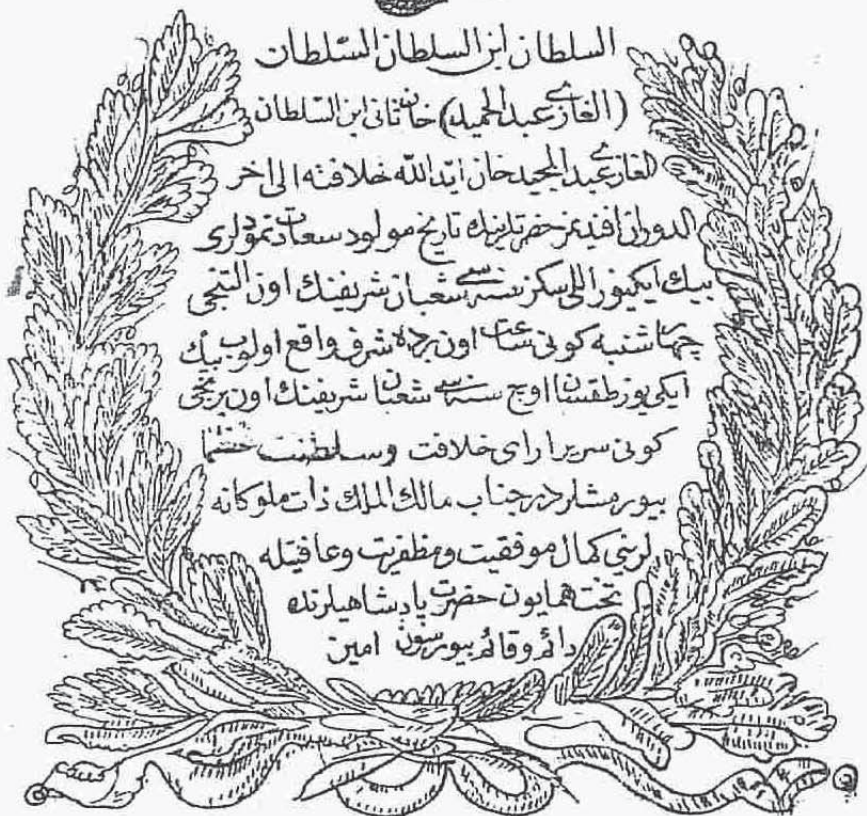 السلطان ابن السلطان السلطان
(الغازی عبد الحمید) خان ثانی ابن السلطان
الغازی عبد المجید خان اید الله خلافته الی اخر
الدوران افندیمز حضرتلرینك تاریخ مولود سعادتنمودلری
بیك ایکیوز اللی سکز سنه سی شعبان شریفنك اون التنجی
چهارشنبه کونی ساعت اون برده شرفواقع اولوب بیك
ایکی یوز طقسان اوچ سنه سی شعبان شریفنك اون برنجی
کونی سریر ارای خلافت وسلطنت
بیورمشلردر جناب مالك الملك ذات ملوکانه
لرینی کمال موفقیت ومظفریت وعافیتله
تخت همایون حضرت پادشاهیلرنده
دائم وقائم بیورسون امین